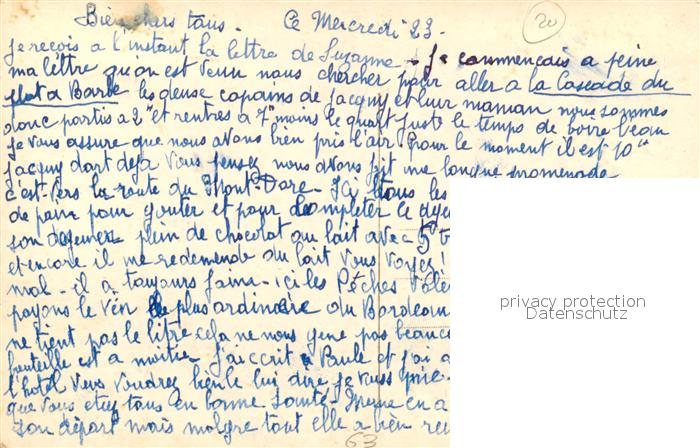 Bien chers tous. Ce Mercredi 23. 20
je reçois a l'instant la lettre de Suzanne - je commençais a peine
ma lettre qu'on est venu nous chercher pour aller a la Cascade du
plat a Barbe les deuse copains de Jacquy et leur maman nous sommes
donc partis a 2" et rentres a 7" moins le quart juste le temps de boire l'eau
je vous assure que nous avons bien pris l'air. Pour le moment il est 10"
Jacquy dort deja vous pensez nous avons fait une longue promenade
c'est vers la route du Mont-Dore - J'ai tous les
de pain pour gouter et pour completer le dejeu
son dejeuner plein de chocolat au lait avec 5
et encore il me redemende du lait Vous voyez!
mal - il a toujours faim - ici les Pêches
payons le Vin le plus ardinaire du Bordeaux
ne tient pas le litre cela ne nous gene pas beauco
bouteille est a moitie - j'ai ecrit a Paule et j'ai
l'hotel Vous voudrez bien le lui dire je vous prie -
que vous etes tous en bonne sante - Meme en a
son depart mais malgre tout elle a bien
63
privacy protection
Datenschutz